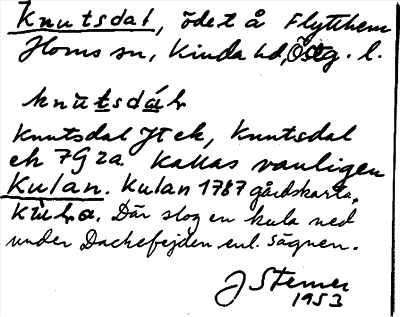 Knutsdal, ödet å Flytthem
Horns sn, Kinda hd, Östg. l.
knùtsdá̱l
Knutsdal Jt ek, Knutsdal
ek 7G 2a kallas vanligen
Kulan. Kulan 1787 gårdskarta,
kùla. Där slog en kula ned
under Dackefejden enl. sägnen.
J Sterner
1953